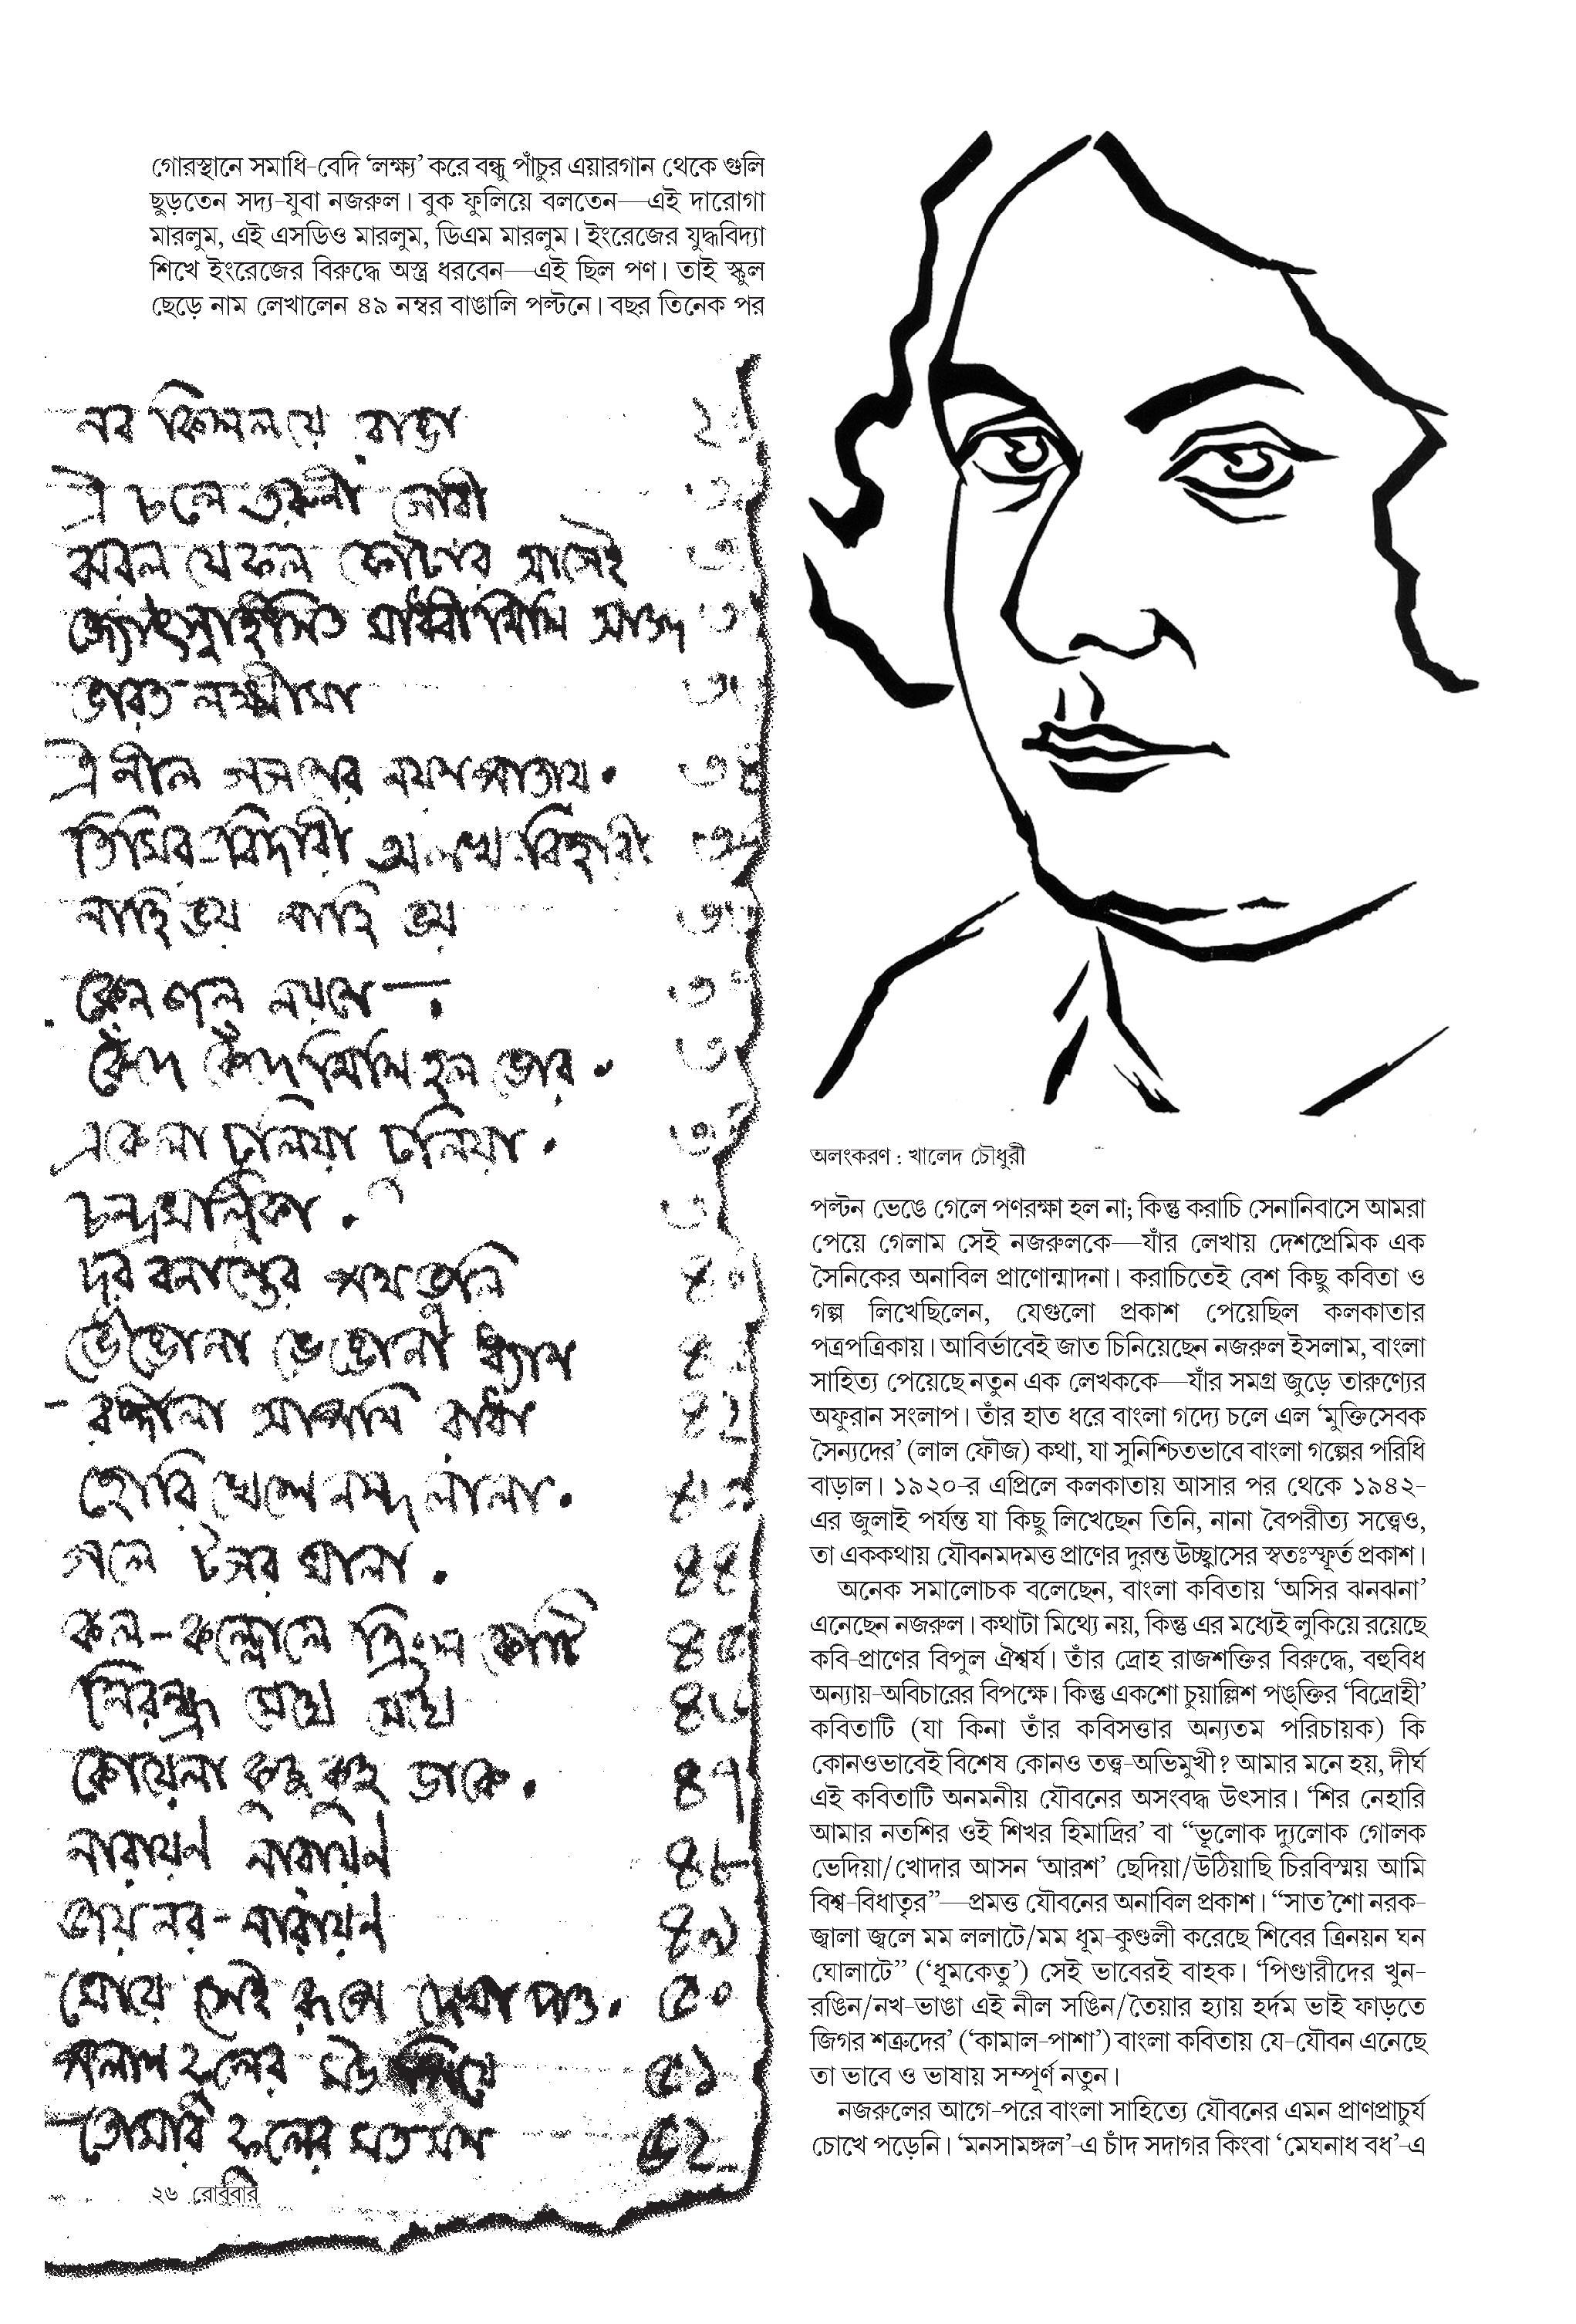 গোরস্থানে সমাধি-বেদি ‘লক্ষ্য’ করে বন্ধু পাঁচুর এয়ারগান থেকে গুলি
ছুড়তেন সদ্য-যুবা নজরুল। বুক ফুলিয়ে বলতেন—এই দারোগা
মারলুম, এই এসডিও মারলুম, ডিএম মারলুম। ইংরেজের যুদ্ধবিদ্যা
শিখে ইংরেজের বিরুদ্ধে অস্ত্র ধরবেন—এই ছিল পণ। তাই স্কুল
ছেড়ে নাম লেখালেন ৪৯ নম্বর বাঙালি পল্টনে। বছর তিনেক পর
নব কিশলয়ে রাঙা
ঐ চলে তরুণী গোরী
ঝরল যে ফুল ফোটার আগেই
জ্যোৎস্নাহসিত মাধবী নিশি আজ
ভারত লক্ষ্মীমা
ঐ নীল গগনের নয়ন পাতায়
তিমির-বিদারী অলখ-বিহারী
নাহি ভয় নাহি ভয়
কেন জল নয়নে—
কেঁদে কেঁদে নিশি হল ভোর
একেলা চুলিয়া চুলিয়া
চন্দ্রমল্লিকা
দূর বনান্তের পথ ভুলি
ভেঙোনা ভেঙোনা ধ্যান
রঙ্গীলা আপনি রাধা ৪২
হোরি খেলে নন্দ লালা ৪৩
গলে টগর মালা ৪৪
কল-কল্লোলে ত্রিংশ কোটি ৪৫
নিরন্ধ্র মেঘে মেঘে ৪৬
কোয়েলা কুহু কুহু ডাকে ৪৭
নারায়ন নারায়ন ৪৮
জয় নর-নারায়ন ৪৯
মোরে সেই রূপে দেখা দাও ৫০
পলাশ ফুলের মউ পিয়ে ৫১
তোমার ফুলের মত মন ৫২
২৬ রোববার
অলংকরণ : খালেদ চৌধুরী
পল্টন ভেঙে গেলে পণরক্ষা হল না; কিন্তু করাচি সেনানিবাসে আমরা
পেয়ে গেলাম সেই নজরুলকে—যাঁর লেখায় দেশপ্রেমিক এক
সৈনিকের অনাবিল প্রাণোন্মাদনা। করাচিতেই বেশ কিছু কবিতা ও
গল্প লিখেছিলেন, যেগুলো প্রকাশ পেয়েছিল কলকাতার
পত্রপত্রিকায়। আবির্ভাবেই জাত চিনিয়েছেন নজরুল ইসলাম, বাংলা
সাহিত্য পেয়েছে নতুন এক লেখককে—যাঁর সমগ্র জুড়ে তারুণ্যের
অফুরান সংলাপ। তাঁর হাত ধরে বাংলা গদ্যে চলে এল ‘মুক্তিসেবক
সৈন্যদের’ (লাল ফৌজ) কথা, যা সুনিশ্চিতভাবে বাংলা গল্পের পরিধি
বাড়াল। ১৯২০-র এপ্রিলে কলকাতায় আসার পর থেকে ১৯৪২-
এর জুলাই পর্যন্ত যা কিছু লিখেছেন তিনি, নানা বৈপরীত্য সত্ত্বেও,
তা এককথায় যৌবনমদমত্ত প্রাণের দুরন্ত উচ্ছ্বাসের স্বতঃস্ফূর্ত প্রকাশ।
অনেক সমালোচক বলেছেন, বাংলা কবিতায় ‘অসির ঝনঝনা’
এনেছেন নজরুল। কথাটা মিথ্যে নয়, কিন্তু এর মধ্যেই লুকিয়ে রয়েছে
কবি-প্রাণের বিপুল ঐশ্বর্য। তাঁর দ্রোহ রাজশক্তির বিরুদ্ধে, বহুবিধ
অন্যায়-অবিচারের বিপক্ষে। কিন্তু একশো চুয়াল্লিশ পঙ্‌ক্তির ‘বিদ্রোহী’
কবিতাটি (যা কিনা তাঁর কবিসত্তার অন্যতম পরিচায়ক) কি
কোনওভাবেই বিশেষ কোনও তত্ত্ব-অভিমুখী? আমার মনে হয়, দীর্ঘ
এই কবিতাটি অনমনীয় যৌবনের অসংবদ্ধ উৎসার। ‘শির নেহারি
আমার নতশির ওই শিখর হিমাদ্রির’ বা “ভূলোক দ্যুলোক গোলক
ভেদিয়া/খোদার আসন ‘আরশ’ ছেদিয়া/উঠিয়াছি চিরবিস্ময় আমি
বিশ্ব-বিধাতৃর”—প্রমত্ত যৌবনের অনাবিল প্রকাশ। “সাত’শো নরক-
জ্বালা জ্বলে মম ললাটে/মম ধূম-কুণ্ডলী করেছে শিবের ত্রিনয়ন ঘন
ঘোলাটে” (‘ধূমকেতু’) সেই ভাবেরই বাহক। ‘পিণ্ডারীদের খুন-
রঙিন/নখ-ভাঙা এই নীল সঙিন/তৈয়ার হ্যায় হর্দম ভাই ফাড়তে
জিগর শত্রুদের’ (‘কামাল-পাশা’) বাংলা কবিতায় যে-যৌবন এনেছে
তা ভাবে ও ভাষায় সম্পূর্ণ নতুন।
নজরুলের আগে-পরে বাংলা সাহিত্যে যৌবনের এমন প্রাণপ্রাচুর্য
চোখে পড়েনি। ‘মনসামঙ্গল’-এ চাঁদ সদাগর কিংবা ‘মেঘনাধ বধ’-এ